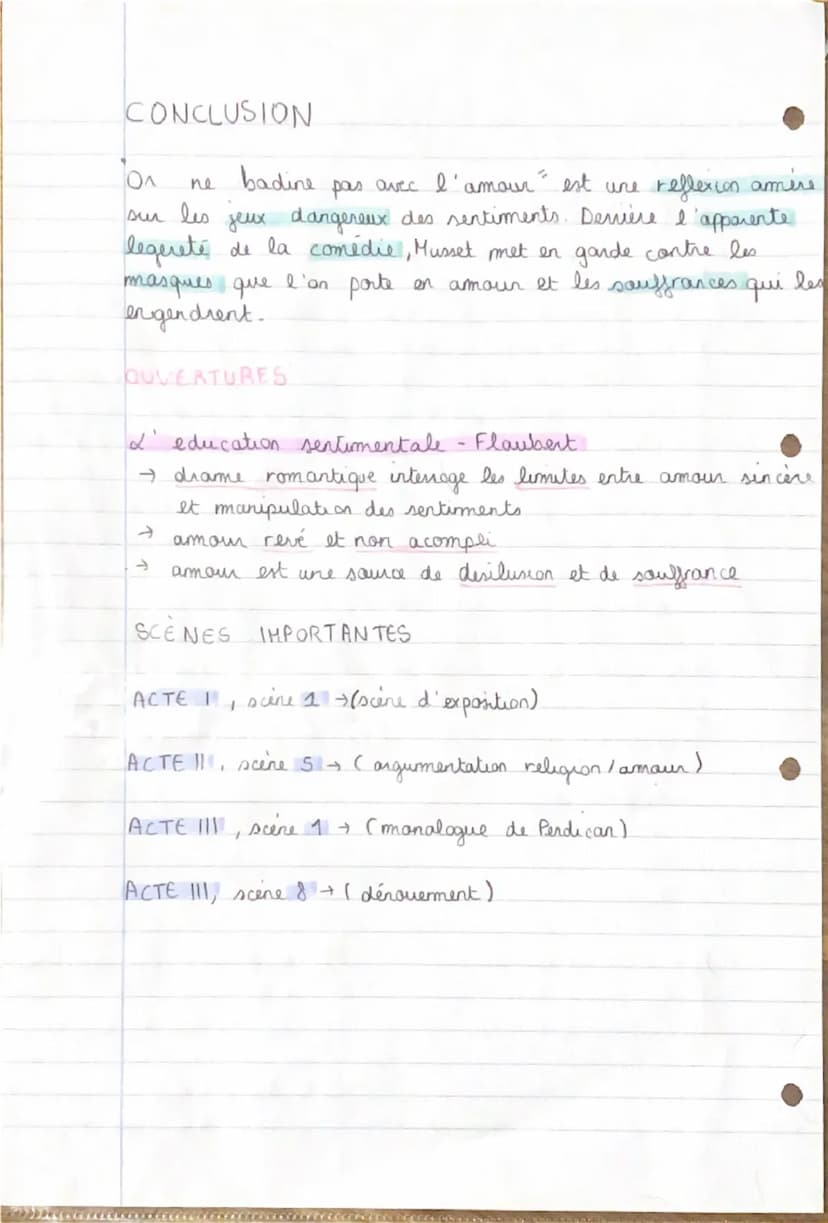 CONCLUSION
"On ne badine pas avec l'amour" est une reflexion amère
sur les jeux dangereux des sentiments. Derrière l'apparente
legereté de la comédie, Musset met en garde contre les
masques que l'on porte en amour et les souffrances qui les
engendrent.
OUVERTURES
L'education sentimentale - Flaubert
→ drame romantique interroge les limites entre amour sincère
et manipulation des sentiments
→ amour revé et non acompli
→ amour est une source de desilusion et de souffrance
SCÈNES IMPORTANTES
ACTE I, scène 1 → (scène d'exposition)
ACTE II, scène 5 → (argumentation religion/amour)
ACTE III, scène 1 → (monologue de Perdican)
ACTE III, scène 8 → (dénouement)